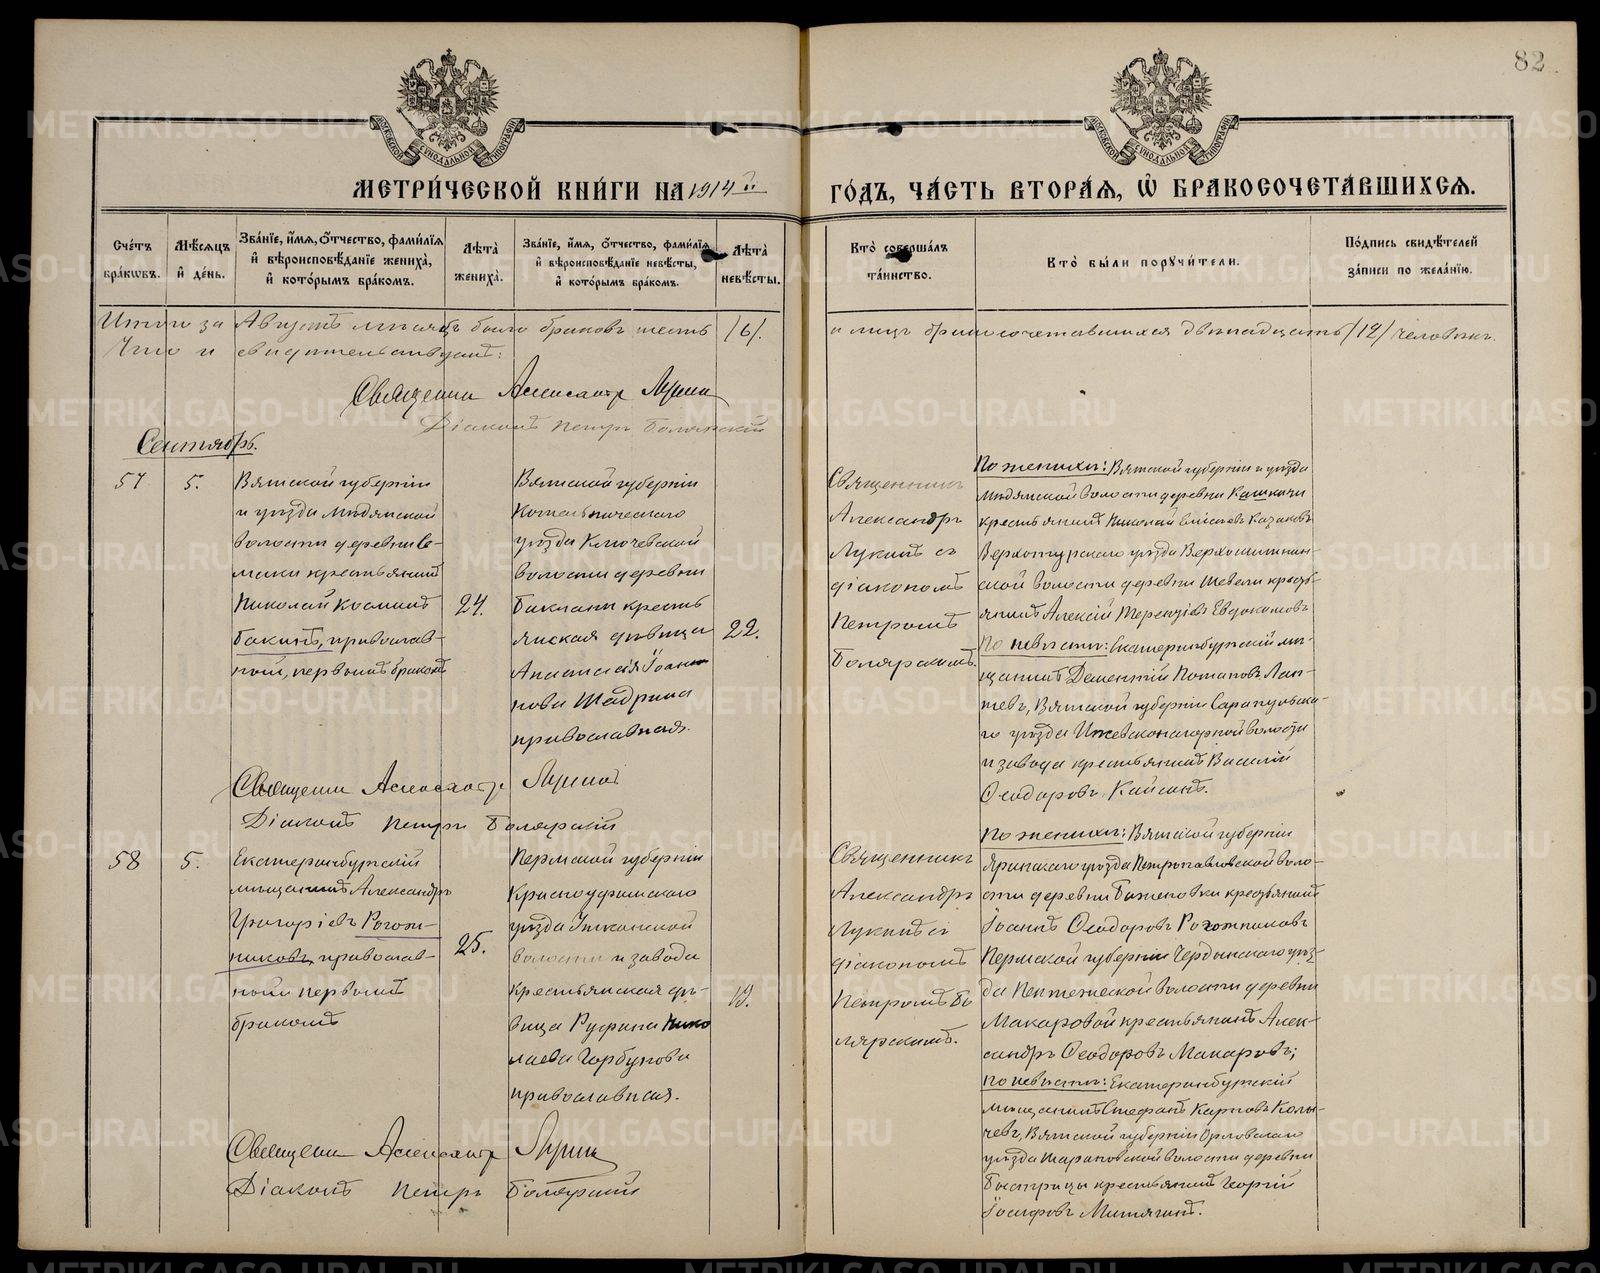 82
МОСКОВСКОЙ СѴНОДАЛЬНОЙ ТИПОГРАФІИ
МОСКОВСКОЙ СѴНОДАЛЬНОЙ ТИПОГРАФІИ
МЕТРИ́ЧЕСКОЙ КНИ́ГИ НА 1914й
ГО́ДЪ, ЧА́СТЬ ВТОРА́Я, Ѽ БРАКОСОЧЕТА́ВШИХСЯ.
Сче́тъ бра́кѡвъ.
Мѣ́сяцъ и҆ де́нь.
Зва́нїе, и҆́мя, ѻ҆́тчество, фами́лїя и҆ вѣроисповѣ́данїе жениха̀, и҆ кото́рымъ бра́комъ.
Лѣта̀ жениха̀.
Зва́нїе, и҆́мя, ѻ҆́тчество, фами́лїя и҆ вѣроисповѣ́данїе невѣ́сты, и҆ кото́рымъ бра́комъ.
Лѣта̀ невѣ́сты.
Кто̀ соверша́лъ та́инство.
Кто̀ бы́ли порꙋчи́тели.
По́дпись свидѣ́телей за́писи по жела́нїю.
Итого за Августъ мѣсяцъ было браковъ шесть /6/. и лицъ бракосочетавшихся двѣнадцать /12/ человѣкъ.
Что и свидѣтельствуютъ:
Священникъ Александръ Лукинъ
Діаконъ Петръ Болярскій
Сентябрь.
57
5.
Вятской губерніи
и уѣзда Мѣдянской
волости деревни Се-
маки крестьянинъ
Николай Косминъ
Бакинъ, православ-
ной, первымъ бракомъ
24.
Вятской губерніи
Котельническаго
уѣзда Ключевской
волости деревни
Баклани кресть
янская дѣвица
Анастасія Іоан
нова Шадрина
православная.
22.
Священникъ
Александръ
Лукинъ съ
діакономъ
Петромъ
Болярскимъ.
По женихѣ: Вятской губерніи и уѣзда
Мѣдянской волости деревни Кашкачи
крестьянинъ Николай Казаковъ
Верхотурскаго уѣзда
ской волости деревни Шевели кресть-
янинъ Алексій Терентіевъ Евдокимовъ
По невѣстѣ: Екатеринбургскій мѣ-
щанинъ Дементій Потаповъ Лап-
тевъ, Вятской губерніи Сарапульска-
го уѣзда Ижевсконагорной волости
и завода крестьянинъ Василій
Ѳеодоровъ Кайсинъ.
Священникъ Александръ Лукинъ
Діаконъ Петръ Болярскій
58
5.
Екатеринбургскій
мѣщанинъ Александръ
Григоріевъ Рогож-
никовъ, православ-
ной первымъ
бракомъ
25.
Пермской губерніи
Красноуфимскаго
уѣзда Уткинской
волости и завода
крестьянская дѣ-
вица Руфина Нико
лаева Горбунова
православная.
19.
Священникъ
Александръ
Лукинъ съ
діакономъ
Петромъ Бо
лярскимъ.
По женихѣ: Вятской губерніи
Яранскаго уѣзда Петропавловской воло-
сти деревни Баженовки крестьянинъ
Іоаннъ Ѳеодоровъ Рогожниковъ
Пермской губерніи Чердынскаго уѣз-
да Пянтежской волости деревни
Макаровой крестьянинъ Алек-
сандръ Ѳеодоровъ Макаровъ;
По невѣстѣ: Екатеринбургскій
мѣщанинъ Стефанъ Карповъ Колы-
чевъ, Вятской губерніи Орловскаго
уѣзда Шараповской волости деревни
Быстрицы крестьянинъ Георгій
Іосифовъ Митягинъ.
Священникъ Александръ Лукинъ
Діаконъ Петръ Болярскій
METRIKI.GASO-URAL.RU